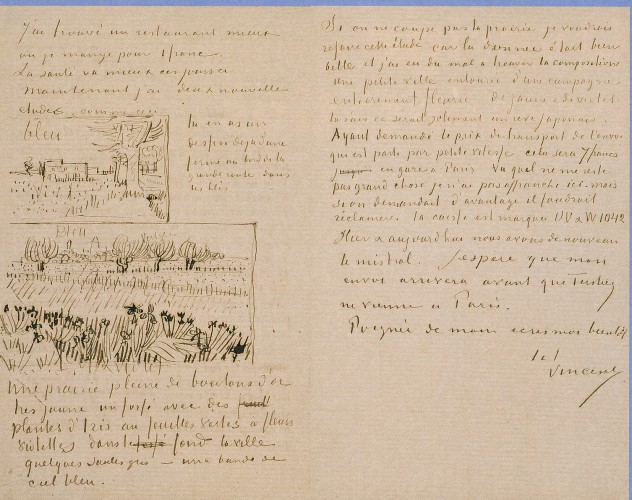 J'ai trouvé un restaurant mieux
où je mange pour 1 franc.
La santé va mieux ces jours ci
maintenant j'ai deux nouvelle
etudes comme ceci
bleu
tu en as un
dessin déjà d'une
ferme au bord de la
grande route dans
les blés
bleu
Une prairie pleine de boutons d'or
très jaune un fossé avec des
plantes d'iris aux feuilles vertes à fleurs
violettes dans le fond la ville
quelques saules gris – une bande de
ciel bleu.
Si on ne coupe pas la prairie je voudrais
refaire cette étude car la donnée était bien
belle et j'ai eu du mal a trouver la composition
Une petite ville entourée d'une campagne
entièrement fleurie de jaune & de violet
tu sais ce serait joliment un rêve japonais.
Ayant demandé le prix de transport de l'envoi
qui est parti par petite vitesse cela sera 7 francs
en gare à Paris Va quel ne me reste
pas grand chose je n'ai pas affranchi ici. mais
si on demandait d'avantage il faudrait
réclamer. la caisse est marquée UV & W 1042
Hier & aujourd'hui nous avons de nouveau
le mistral. J'espère que mon
envoi arrivera avant que Tersteeg
ne vienne a Paris.
Poignée de main ecris moi bientôt
t. à t.
Vincent